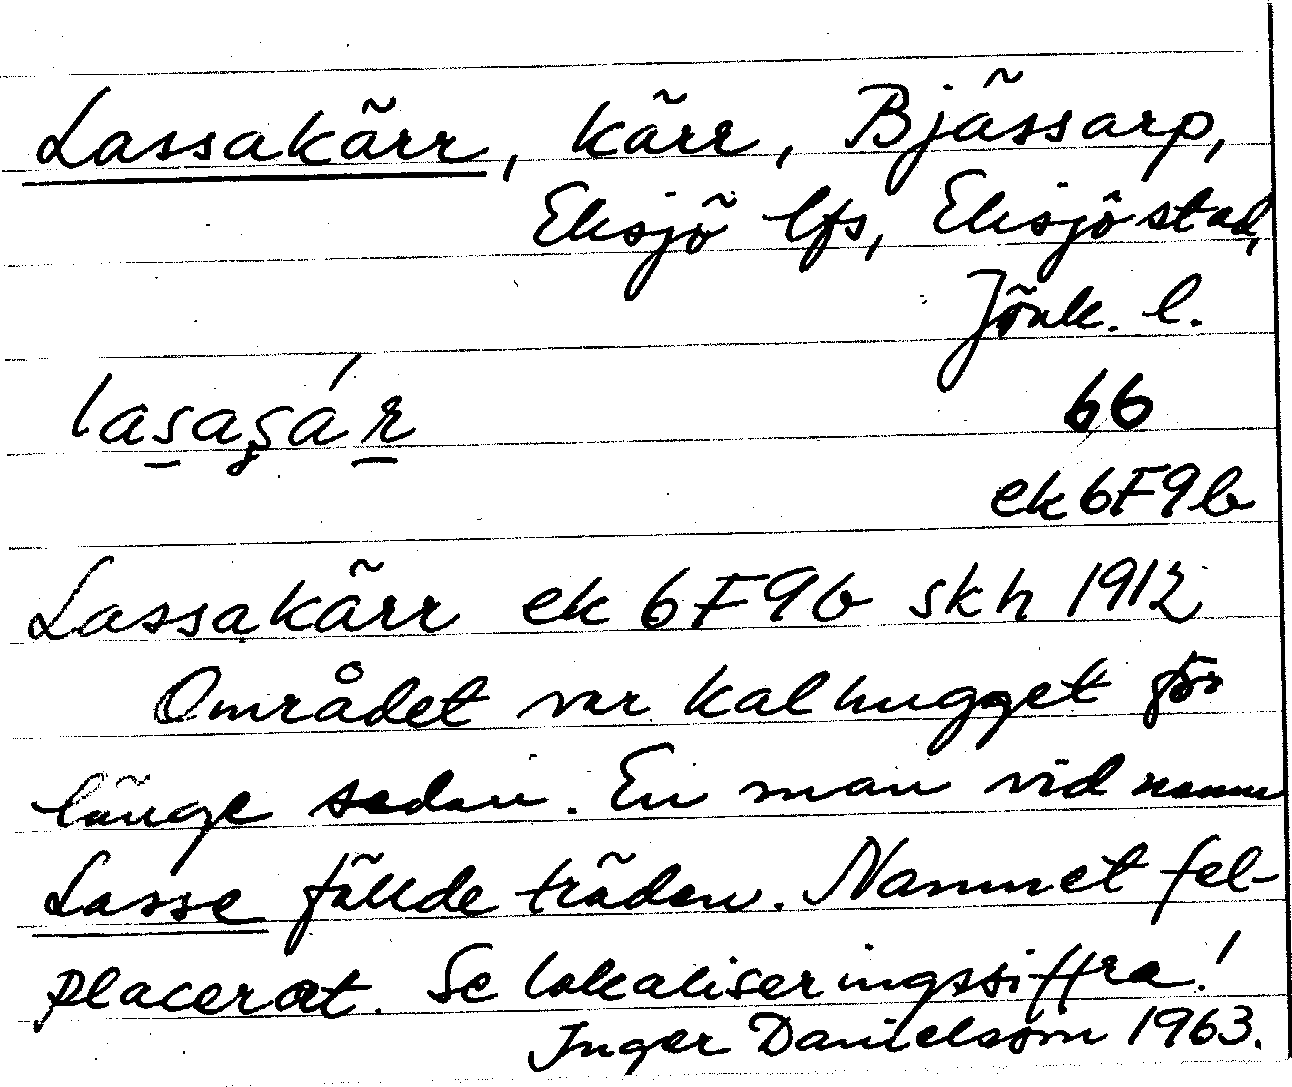 Lassakärr, kärr, Bjässarp,
Eksjö lfs, Eksjö stad,
Jönk. l.
66
ek6F9b
Lassakärr ek 6F9b skh 1912
Området var kalhugget för
länge sedan. En man vid namn
Lasse fällde träden. Namnet fel-
placerat. Se lokaliseringssiffra!
Inger Danielsson 1963.